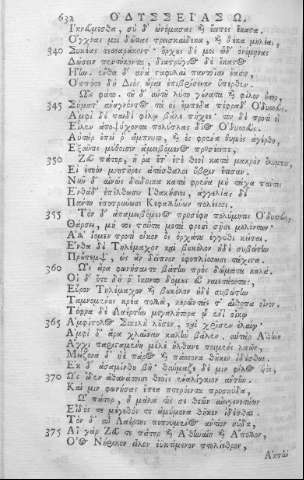 632 ΟΔΥΣΣΕΙΑΣ Ω.
Ἱκνεύμεσθα, σὺ δ' ὠνόμασας καὶ ἔειπες ἕκαστα.
Ὄγχνας μοι δῶκας τρισκαίδεκα, καὶ δέκα μηλέας,
340 Συκέας τεσσαράκοντ'· ὄρχους δέ μοι ὧδ' ὀνόμηνας
Δώσειν πεντήκοντα, διατρύγιος δὲ ἕκαστος
Ἤην. ἔνθα δ' ἀνὰ σταφυλαὶ παντοῖαι ἔασιν,
Ὁππότε δὴ Διὸς ὧραι ἐπιβρίσειαν ὕπερθεν.
Ὣς φάτο. τοῦ δ' αὐτοῦ λύτο γούνατα καὶ φίλον ἦτορ,
345 Σήματ' ἀναγνόντος τά οἱ ἔμπεδα πέφραδ' Ὀδυσσεύς.
Ἀμφὶ δὲ παιδὶ φίλῳ βάλε πήχεε· τὸν δὲ προτὶ οἷ
Εἷλεν ἀποψύχοντα πολύτλας δῖος Ὀδυσσεύς.
Αὐτὰρ ἐπεί ῥ' ἄμπνυτο, καὶ ἐς φρένα θυμὸς ἀγέρθη,
Ἐξαῦτις μύθοισιν ἀμειβόμενος προσέειπε,
350 Ζεῦ πάτερ, ἦ ῥα ἔτ' ἐστὲ θεοὶ κατὰ μακρὸν Ὄλυμπον,
Εἰ ἐτεὸν μνηστῆρες ἀτάσθαλον ὕβριν ἔτισαν.
Νῦν δ' αἰνῶς δείδοικα κατὰ φρένα μὴ τάχα πάντες
Ἐνθάδ' ἐπέλθωσιν Ἰθακήσιοι, ἀγγελίας δὲ
Πάντη ἐποτρύνωσι Κεφαλλήνων πολίεσσι.
355 Τὸν δ' ἀπαμειβόμενος προσέφη πολύμητις Ὀδυσσεύς,
Θάρσει, μή τοι ταῦτα μετὰ φρεσὶ σῇσι μελόντων·
Ἀλλ' ἴομεν προτὶ οἶκον ὃς ὀρχάτου ἐγγύθι κεῖται.
Ἔνθα δὲ Τηλέμαχον καὶ βουκόλον ἠδὲ συβώτην
Προὔπεμψ', ὡς ἂν δεῖπνον ἐφοπλίσσωσι τάχιστα.
360 Ὣς ἄρα φωνήσαντε βάτην πρὸς δώματα καλά.
Οἱ δ' ὅτε δή ῥ' ἵκοντο δόμους εὖ ναιετάοντας,
Εὗρον Τηλέμαχον καὶ βουκόλον ἠδὲ συβώτην
Ταμνομένους κρέα πολλὰ, κερῶντάς τ' αἴθοπα οἶνον.
Τόφρα δὲ Λαέρτην μεγαλήτορα ᾧ ἐνὶ οἴκῳ
365 Ἀμφίπολος Σικελὴ λοῦσεν, καὶ χρῖσεν ἐλαίῳ·
Ἀμφὶ δ' ἄρα χλαῖναν καλὴν βάλεν. αὐτὰρ Ἀθήνη
Ἄγχι παρισταμένη μέλε' ἤλδανε ποιμένι λαῶν,
Μείζονα δ' ἠὲ πάρος καὶ πάσσονα θῆκεν ἰδέσθαι.
Ἐκ δ' ἀσαμίνθου βῆ· θαύμαζε δέ μιν φίλος υἱὸς,
370 Ὡς ἴδεν ἀθανάτοισι θεοῖς ἐναλίγκιον ἄντην.
Καί μιν φωνήσας ἔπεα πτερόεντα προσηύδα,
Ὦ πάτερ, ἦ μάλα τίς σε θεῶν αἰειγενετάων
Εἶδός τε μέγεθός τε ἀμείνονα θῆκεν ἰδέσθαι.
Τὸν δ' αὖ Λαέρτης πεπνυμένος ἀντίον ηὔδα,
375 Αἲ γὰρ Ζεῦ τε πάτερ καὶ Ἀθηναίη καὶ Ἄπολλον,
Οἷος Νήρικον εἷλον ἐυκτίμενον πτολίεθρον,
Ἀκτὴν